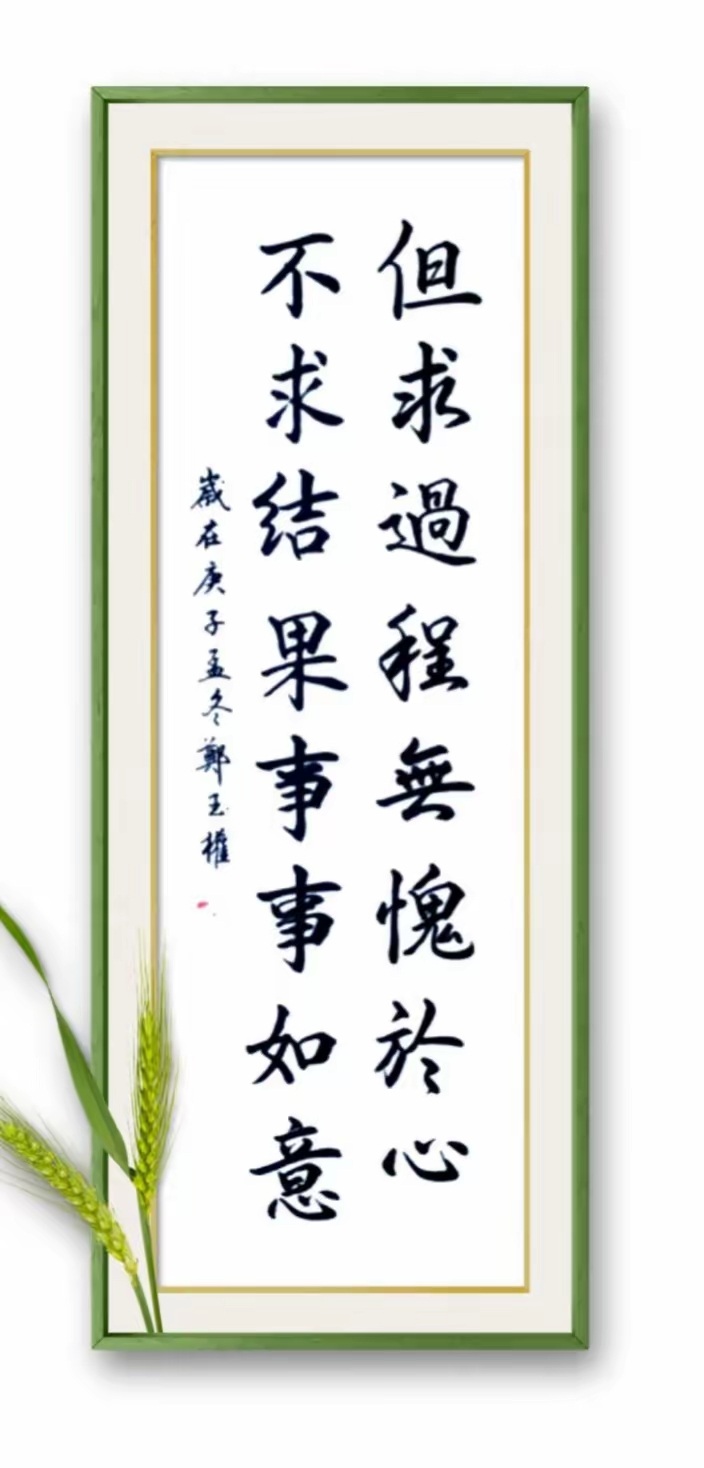 但求過程無愧於心
不求結果事事如意
歲在庚子孟冬鄭玉權